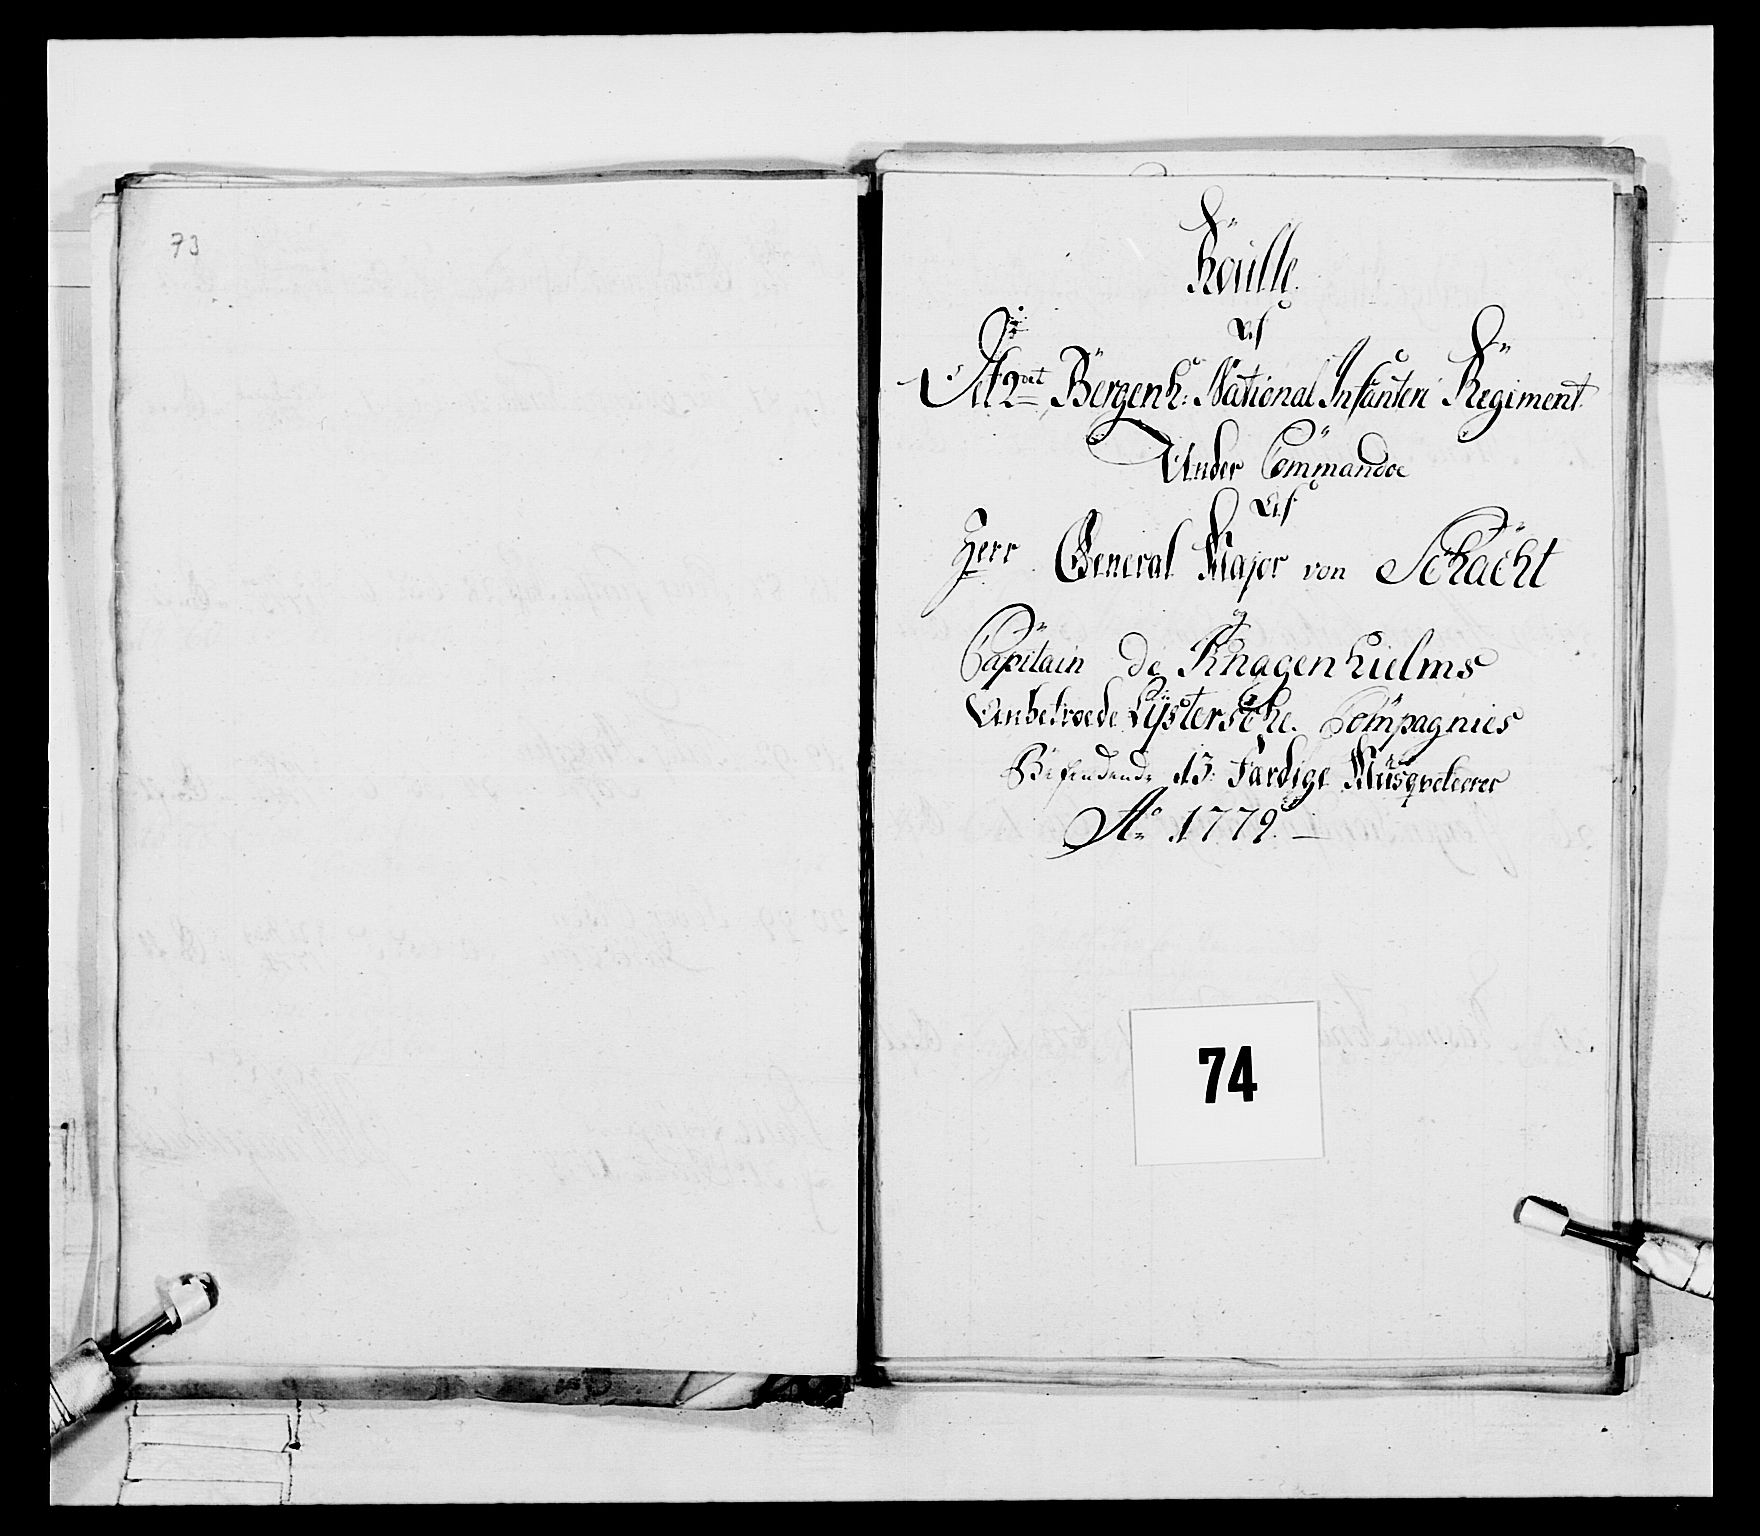 73
Roulle
Af
Det 2det Bergenh: National Infanteri Regiment
Under Commandoe
Af
Herr General Major von Schacht
og
Capitain de Knagenhielms
Anbetroede Lÿstersche Compagnies
Befindende 13: Færdige Musqveterer
Ao 1779.
74